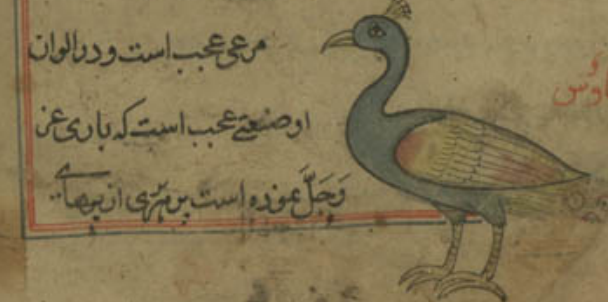 مرغی عجب است و در الوان
او صنعتی عجب است که باری عز
وَجَلَّ نموده است بر هر پری از پرهای